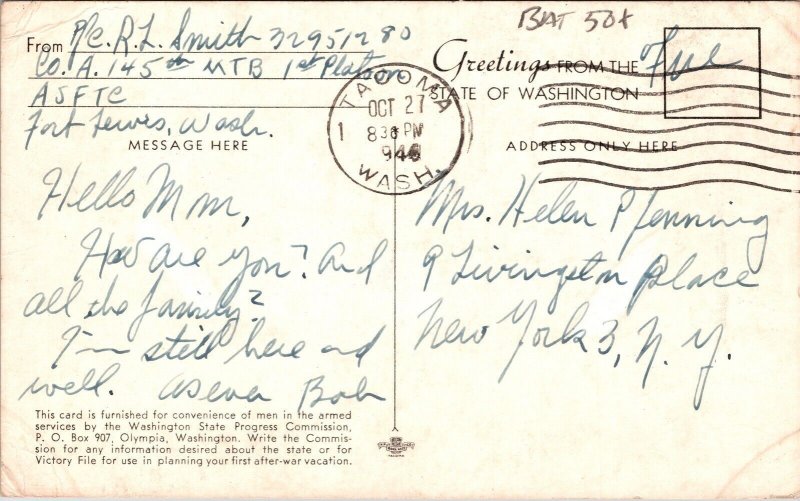 BAT 50¢
From Pfc. R. L. Smith 32951280
Co. A. 145th MTB 1st Platoon
ASFTC
Fort Lewis, Wash.
MESSAGE HERE
Hello Mom,
How are you? And
all the family?
I'm still here and
well. As ever Bob
This card is furnished for convenience of men in the armed
services by the Washington State Progress Commission,
P. O. Box 907, Olympia, Washington. Write the Commis-
sion for any information desired about the state or for
Victory File for use in planning your first after-war vacation.
TACOMA
OCT 27
1 830 PM
WASH.
Greetings FROM THE
STATE OF WASHINGTON
Free
ADDRESS ONLY HERE
Mrs. Helen P Jenning
9 Livingston Place
New York 3, N. Y.